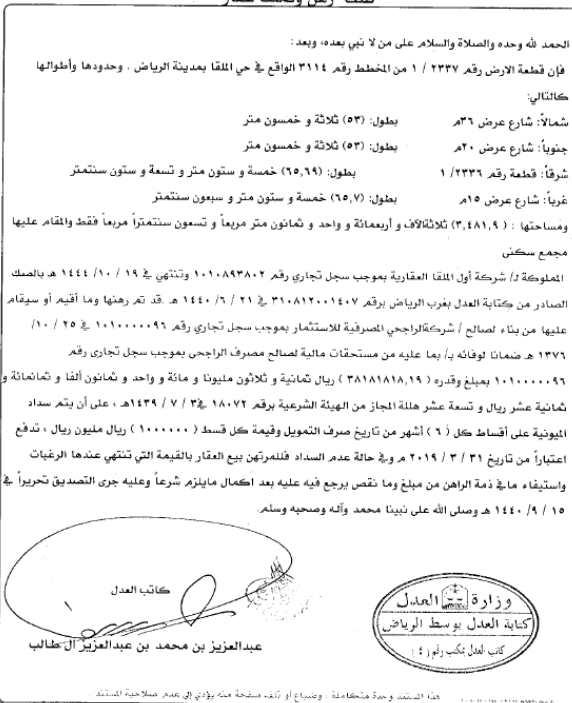 الحمد لله وحده والصلاة والسلام على من لا نبي بعده، وبعد:
فإن قطعة الارض رقم ٢٣٣٧ / ١ من المخطط رقم ٣١١٤ الواقع في حي الملقا بمدينة الرياض . وحدودها وأطوالها
كالتالي:
شمالاً: شارع عرض ٣٦م بطول: (٥٣) ثلاثة و خمسون متر
جنوباً: شارع عرض ٢٠م بطول: (٥٣) ثلاثة و خمسون متر
شرقاً: قطعة رقم ٢٣٣٦/ ١ بطول: (٦٥,٦٩) خمسة و ستون متر و تسعة و ستون سنتمتر
غرباً: شارع عرض ١٥م بطول: (٦٥,٧) خمسة و ستون متر و سبعون سنتمتر
ومساحتها : (٣,٤٨١,٩) ثلاثةآلاف و أربعمائة و واحد و ثمانون متر مربعاً و تسعون سنتمتراً مربعاً فقط والمقام عليها
مجمع سكنى
المملوكة لـ/ شركة أول الملقا العقارية بموجب سجل تجاري رقم ١٠١٠٨٩٣٨٠٢ وتنتهي في ١٩ / ١٠ / ١٤٤٤ هـ بالصك
الصادر من كتابة العدل بغرب الرياض برقم ٣١٠٨١٢٠٠١٤٠٧ في ٢١ / ٦ / ١٤٤٠ هـ .قد تم رهنها وما أقيم أو سيقام
عليها من بناء لصالح / شركةالراجحي المصرفية للاستثمار بموجب سجل تجاري رقم ١٠١٠٠٠٠٠٩٦ في ٢٥ / ١٠/
١٣٧٦ هـ ضمانا لوفائه بـ/ بما عليه من مستحقات مالية لصالح مصرف الراجحى بموجب سجل تجارى رقم
١٠١٠٠٠٠٠٩٦ بمبلغ وقدره (٣٨١٨١٨١٨,١٩) ريال ثمانية و ثلاثون مليونا و مائة و واحد و ثمانون ألفا و ثمانمائة و
ثمانية عشر ريال و تسعة عشر هللة المجاز من الهيئة الشرعية برقم ١٨٠٧٢ في٣ / ٧ / ١٤٣٩هـ ، على أن يتم سداد
الميونية على أقساط كل (٦) أشهر من تاريخ صرف التمويل وقيمة كل قسط (١٠٠٠٠٠٠) ريال مليون ريال ، تدفع
اعتباراً من تاريخ ٣١ / ٣ / ٢٠١٩ م وفي حالة عدم السداد فللمرتهن بيع العقار بالقيمة التي تنتهي عندها الرغبات
واستيفاء ماي ذمة الراهن من مبلغ وما نقص يرجع فيه عليه بعد اكمال مايلزم شرعاً وعليه جرى التصديق تحريراً في
١٥ / ٩/ ١٤٤٠ هـ وصلى الله على نبينا محمد وآله وصحبه وسلم.
كاتب العدل
عبدالعزيز بن محمد بن عبدالعزيز آل طالب
وزارة العدل
كتابة العدل بوسط الرياض
كاتب العدل بمكتب رقم (٤)
هذا المستند وحدة متكاملة ، وضياع أو تلف صفحة منه يؤدي إلى عدم صلاحية المستند .